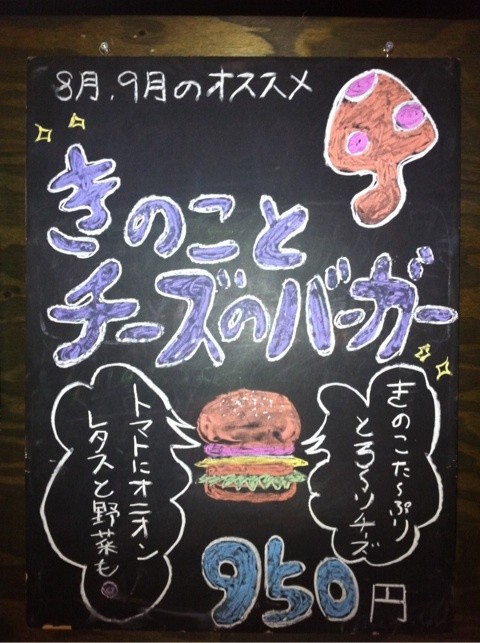 8月、9月のオススメ
きのこと
チーズのバーガー
きのこた〜ぷり
とろ〜りチーズ
トマトにオニオン
レタスと野菜も
950円